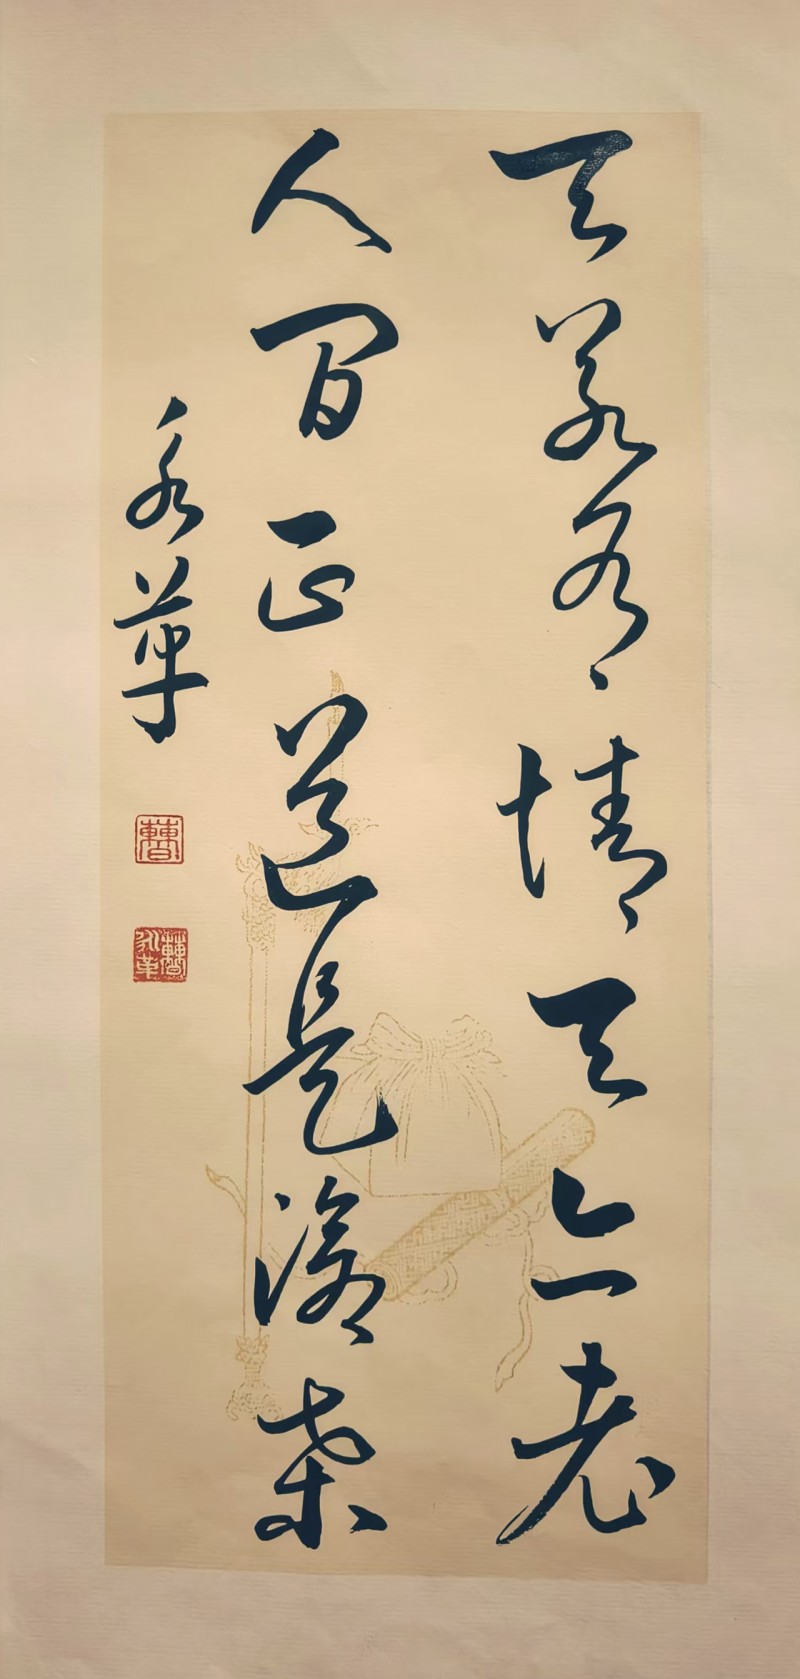 天若有情天亦老
人間正道是滄桑
永革
曹
曹永革